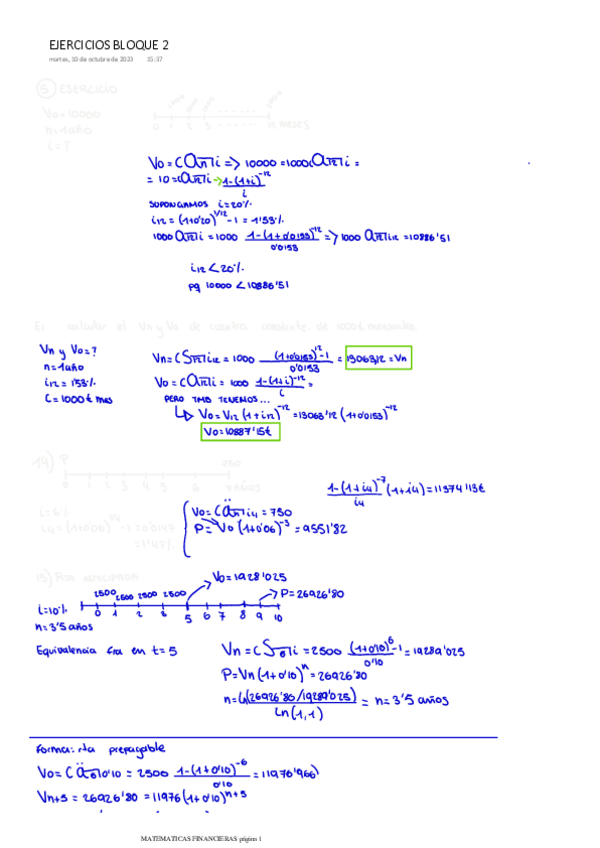 EJERCICIOS BLOQUE 2
martes, 10 de octubre de 2023 15:37
5 EJERCICIO
V0=10000
n=1año
i=?
0 1 2 3 12 meses
V0 = C an¬i => 10000 = 1000 a12¬i =
= 10 = a12¬i → 1-(1+i)^-12 / i
SUPONGAMOS i=20%
i12 = (1+0'20)^1/12 -1 = 1'53%
1000 a12¬i = 1000 1-(1+0'0153)^-12 / 0'0153 => 1000 a12¬i12 = 10886'51
i12 < 20%
pq 10000 < 10886'51
Ej calcular el Vn y V0 de cuantía constante de 1000€ mensuales
Vn y V0=?
n=1año
i12 = 1'53%
C=1000€ mes
Vn = C S12¬i12 = 1000 (1+0'0153)^12 -1 / 0'0153 = 13063'12 = Vn
V0 = C an¬i = 1000 1-(1+i)^-12 / i =
PERO TMB TENEMOS...
V0 = V12 (1+i12)^-12 = 13063'12 (1+0'0153)^-12
V0=10887'15€
14) P 750
0 1 2 3 4 5 7 años
i=6%
i4=(1+0'06)^1/4 -1 = 0'0147
=1'47%
1-(1+i4)^-7 / i4 (1+i4) = 11374'113€
V0 = C än¬i4 = 750
P = V0 (1+0'06)^-3 = 9551'82
15) Rta anticipada
V0=1928'025
2500 2500 2500 2500 P=26926'80
i=10% 0 1 2 3 5 6 7 8 9 10
n=3'5 años
Equivalencia fra en t=5
Vn = C S6¬i = 2500 (1+0'10)^6 -1 / 0'10 = 19289'025
P=Vn (1+0'10)^n = 26926'80
n = ln(26926'80/19289'025) / Ln(1,1) = n=3'5 años
Forma: rta prepagable
V0 = C ä6¬0'10 = 2500 1-(1+0'10)^-6 / 0'10 = 11976'966)
Vn+5 = 26926'80 = 11976 (1+0'10)^n+5
MATEMATICAS FINANCIERAS página 1